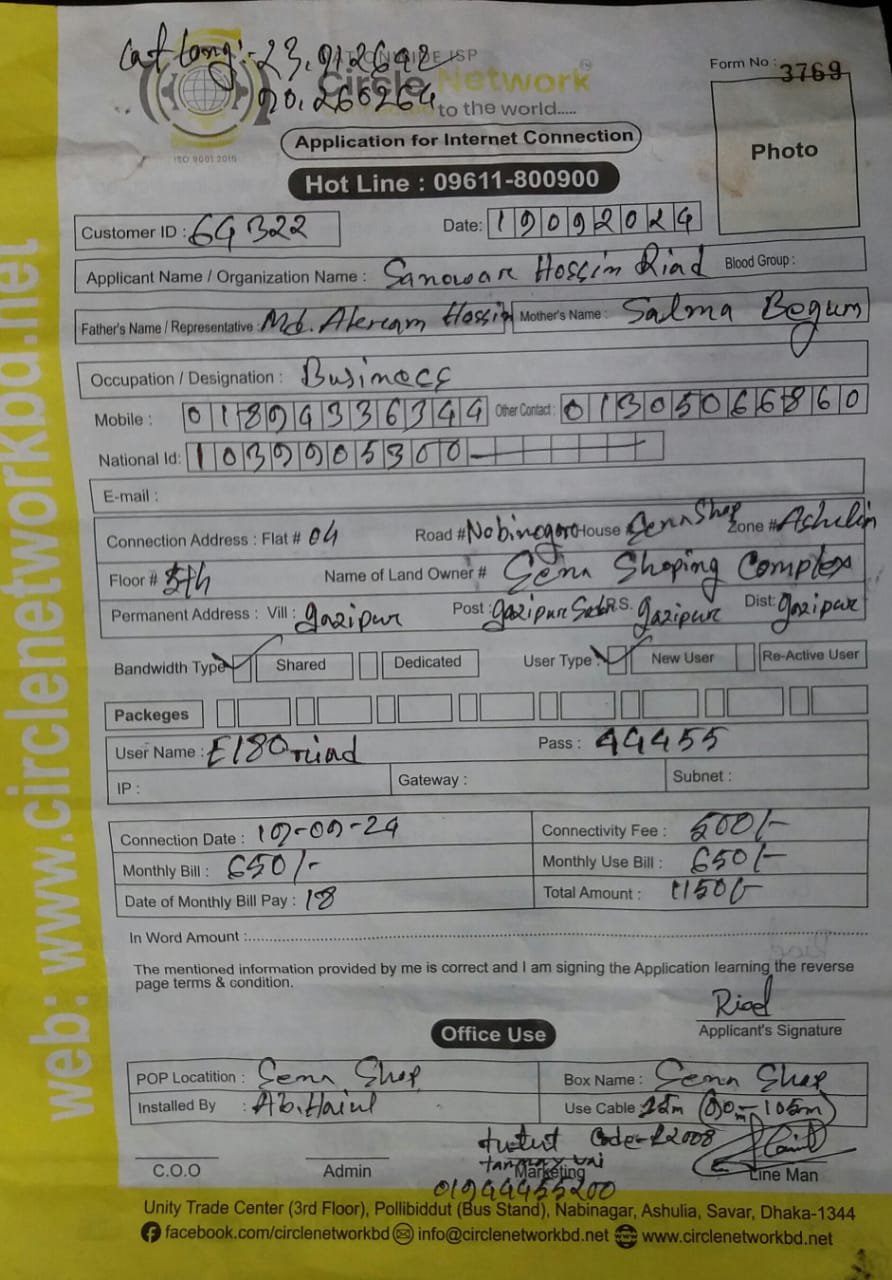 Lat Long:- 23.912692
90.266264
NATIONWIDE ISP
Circle Network
to the world.....
ISO 9001:2015
Form No : 3769
Photo
Application for Internet Connection
Hot Line : 09611-800900
Customer ID : 64322 Date: 19092024
Applicant Name / Organization Name : Sanowar Hossin Riad Blood Group :
Father's Name / Representative : Md. Akram Hossin Mother's Name : Salma Begum
Occupation / Designation : Business
Mobile : 01894336344 Other Contact : 01305066860
National Id: 1039905300
E-mail :
Connection Address : Flat # 04 Road # Nobinogor House Sena Shop Zone # Ashulia
Floor # 5th Name of Land Owner # Sena Shoping Complex
Permanent Address : Vill : gazipur Post : gazipur Sadr P.S. gazipur Dist: gazipur
Bandwidth Type Shared Dedicated User Type : New User Re-Active User
Packeges
User Name : E180riad Pass : 44455
IP : Gateway : Subnet :
Connection Date : 19-09-24 Connectivity Fee : 500/-
Monthly Bill : 650/- Monthly Use Bill : 650/-
Date of Monthly Bill Pay : 18 Total Amount : 1150/-
In Word Amount :
The mentioned information provided by me is correct and I am signing the Application learning the reverse
page terms & condition.
Riad
Applicant's Signature
Office Use
POP Locatition : Sena Shop Box Name : Sena Shop
Installed By : Ab. Use Cable 15m (90m-105m)
Code-12008
C.O.O Admin Marketing Line Man
01944455200
Unity Trade Center (3rd Floor), Pollibiddut (Bus Stand), Nabinagar, Ashulia, Savar, Dhaka-1344
facebook.com/circlenetworkbd info@circlenetworkbd.net www.circlenetworkbd.net
web: www.circlenetworkbd.net